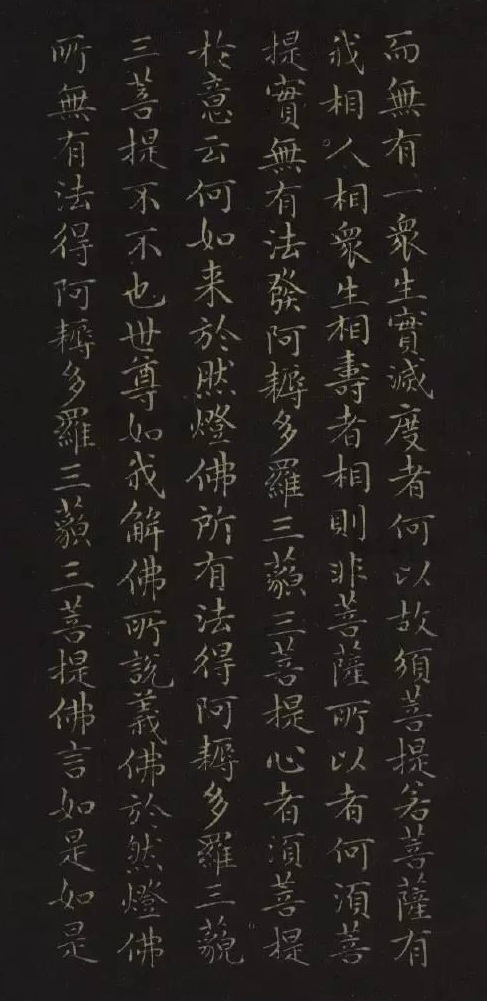 而無有一衆生實滅度者何以故須菩提若菩薩有
我相人相衆生相壽者相則非菩薩所以者何須菩
提實無有法發阿耨多羅三藐三菩提心者須菩提
於意云何如来於然燈佛所有法得阿耨多羅三藐
三菩提不不也世尊如我解佛所說義佛於然燈佛
所無有法得阿耨多羅三藐三菩提佛言如是如是